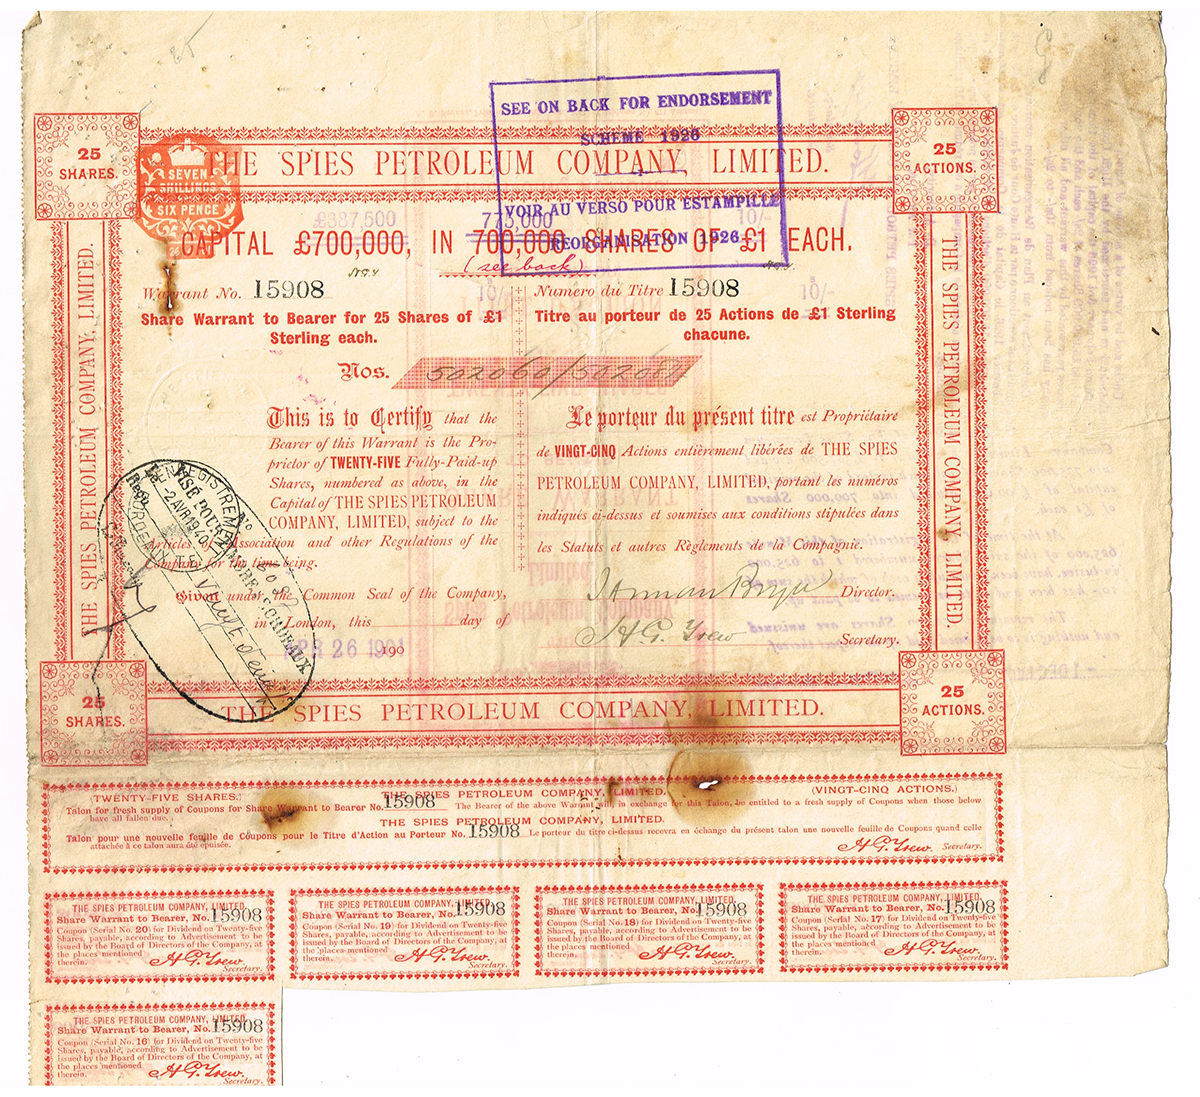 SEE ON BACK FOR ENDORSEMENT
SCHEME 1926
VOIR AU VERSO POUR ESTAMPILLE
REORGANISATION 1926
25
SHARES.
25
ACTIONS.
SEVEN
SHILLINGS
SIX PENCE
26
THE SPIES PETROLEUM COMPANY, LIMITED.
£387,500 775,000 10/-
CAPITAL £700,000, IN 700,000 SHARES OF £1 EACH.
(see back)
Warrant No. 15908
10/-
Share Warrant to Bearer for 25 Shares of £1
Sterling each.
Numero du Titre 15908
10/-
Titre au porteur de 25 Actions de £1 Sterling
chacune.
Nos. 502060/502084
This is to Certify that the
Bearer of this Warrant is the Pro-
prietor of TWENTY-FIVE Fully-Paid-up
Shares, numbered as above, in the
Capital of THE SPIES PETROLEUM
COMPANY, LIMITED, subject to the
Articles of Association and other Regulations of the
Company for the time being.
Given under the Common Seal of the Company,
in London, this day of
APR 26 1901 190
Le porteur du présent titre est Propriétaire
de VINGT-CINQ Actions entièrement libérées de THE SPIES
PETROLEUM COMPANY, LIMITED, portant les numéros
indiqués ci-dessus et soumises aux conditions stipulées dans
les Statuts et autres Règlements de la Compagnie.
Director.
H G Trew Secretary.
THE SPIES PETROLEUM COMPANY, LIMITED.
THE SPIES PETROLEUM COMPANY, LIMITED.
ENREGISTREMENT
BORDEAUX
2 AVR 1940
25
SHARES.
25
ACTIONS.
THE SPIES PETROLEUM COMPANY, LIMITED.
(TWENTY-FIVE SHARES.) THE SPIES PETROLEUM COMPANY, LIMITED. (VINGT-CINQ ACTIONS.)
Talon for fresh supply of Coupons for Share Warrant to Bearer No. 15908 The Bearer of the above Warrant will, in exchange for this Talon, be entitled to a fresh supply of Coupons when those below
have all fallen due.
THE SPIES PETROLEUM COMPANY, LIMITED.
Talon pour une nouvelle feuille de Coupons pour le Titre d'Action au Porteur No. 15908 Le porteur du titre ci-dessus recevra en échange du présent talon une nouvelle feuille de Coupons quand celle
attachée à ce talon aura été épuisée.
H G Trew. Secretary.
THE SPIES PETROLEUM COMPANY, LIMITED.
Share Warrant to Bearer, No. 15908
Coupon (Serial No. 20) for Dividend on Twenty-five
Shares, payable, according to Advertisement to be
issued by the Board of Directors of the Company, at
the places mentioned
therein. H G Trew.
Secretary.
THE SPIES PETROLEUM COMPANY, LIMITED.
Share Warrant to Bearer, No. 15908
Coupon (Serial No. 19) for Dividend on Twenty-five
Shares, payable, according to Advertisement to be
issued by the Board of Directors of the Company, at
the places mentioned
therein. H G Trew.
Secretary.
THE SPIES PETROLEUM COMPANY, LIMITED.
Share Warrant to Bearer, No. 15908
Coupon (Serial No. 18) for Dividend on Twenty-five
Shares, payable, according to Advertisement to be
issued by the Board of Directors of the Company, at
the places mentioned
therein. H G Trew.
Secretary.
THE SPIES PETROLEUM COMPANY, LIMITED.
Share Warrant to Bearer, No. 15908
Coupon (Serial No. 17) for Dividend on Twenty-five
Shares, payable, according to Advertisement to be
issued by the Board of Directors of the Company, at
the places mentioned
therein. H G Trew.
Secretary.
THE SPIES PETROLEUM COMPANY, LIMITED.
Share Warrant to Bearer, No. 15908
Coupon (Serial No. 16) for Dividend on Twenty-five
Shares, payable, according to Advertisement to be
issued by the Board of Directors of the Company, at
the places mentioned
therein. H G Trew.
Secretary.